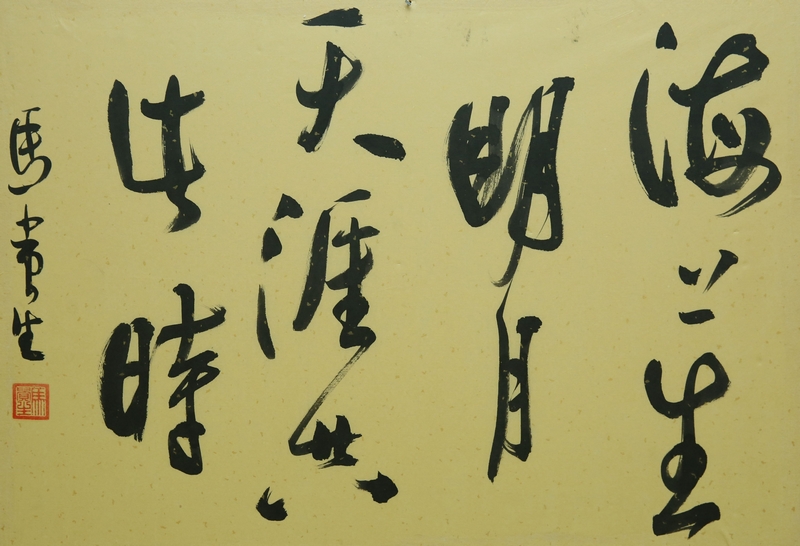 海上生
明月
天涯共
此時
馬貴生